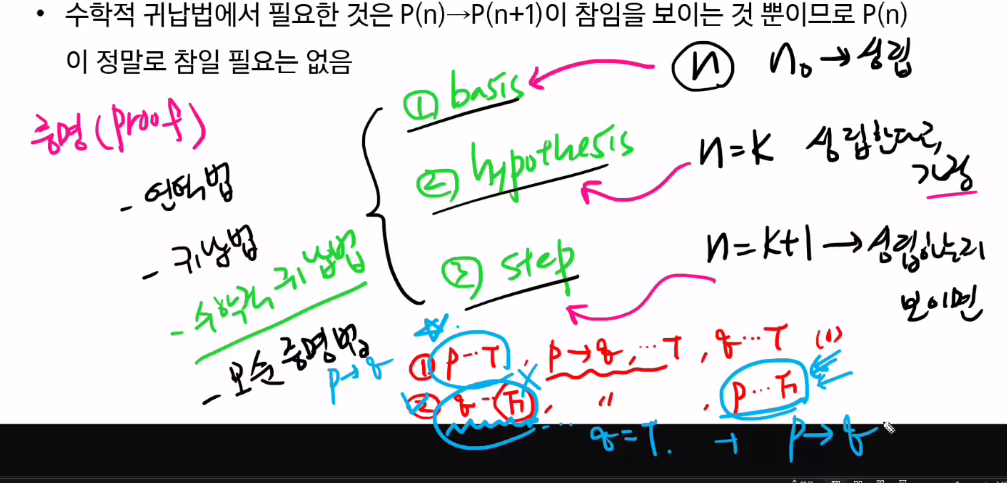 • 수학적 귀납법에서 필요한 것은 P(n)→P(n+1)이 참임을 보이는 것 뿐이므로 P(n)
이 정말로 참일 필요는 없음
증명(Proof)
- 연역법
- 귀납법
- 수학적 귀납법
- 모순 증명법
① basis
② hypothesis
③ step
n n₀ → 성립
n=k 성립한다고,
가정
n=k+1 → 성립하는지
보이면
p→q
① p…T, p→q, …T, q…T (o)
② q…F, 〃, p…F
q=T. → p→q